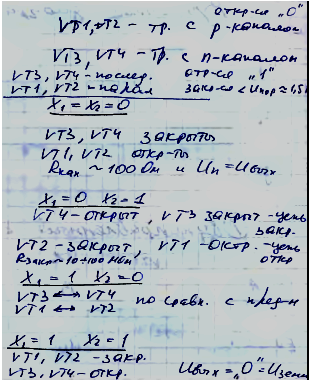 откр-ся „0"
VT1, VT2 - тр. с p-каналом
VT3, VT4 - тр. с n-каналом
VT3, VT4 - послед. откр-ся „1"
VT1, VT2 - парал закр-ся < Uпор ≈ 1,5
X₁ = X₂ = 0
VT3, VT4 закрыты
VT1, VT2 откр-ты
Rкан ~ 100 Ом и Uп = Uвых
X₁ = 0 X₂ = 1
VT4 - открыт, VT3 закрыт - цепь
закр.
VT2 - закрыт, VT1 - откр. - цепь
Rзакр ~ 10÷100 МОм откр
X₁ = 1 X₂ = 0
VT3 ↔ VT4 по сравн. с пред-м
VT1 ↔ VT2
X₁ = 1 X₂ = 1
VT1, VT2 - закр.
VT3, VT4 - откр. Uвых = „0" = Uземли